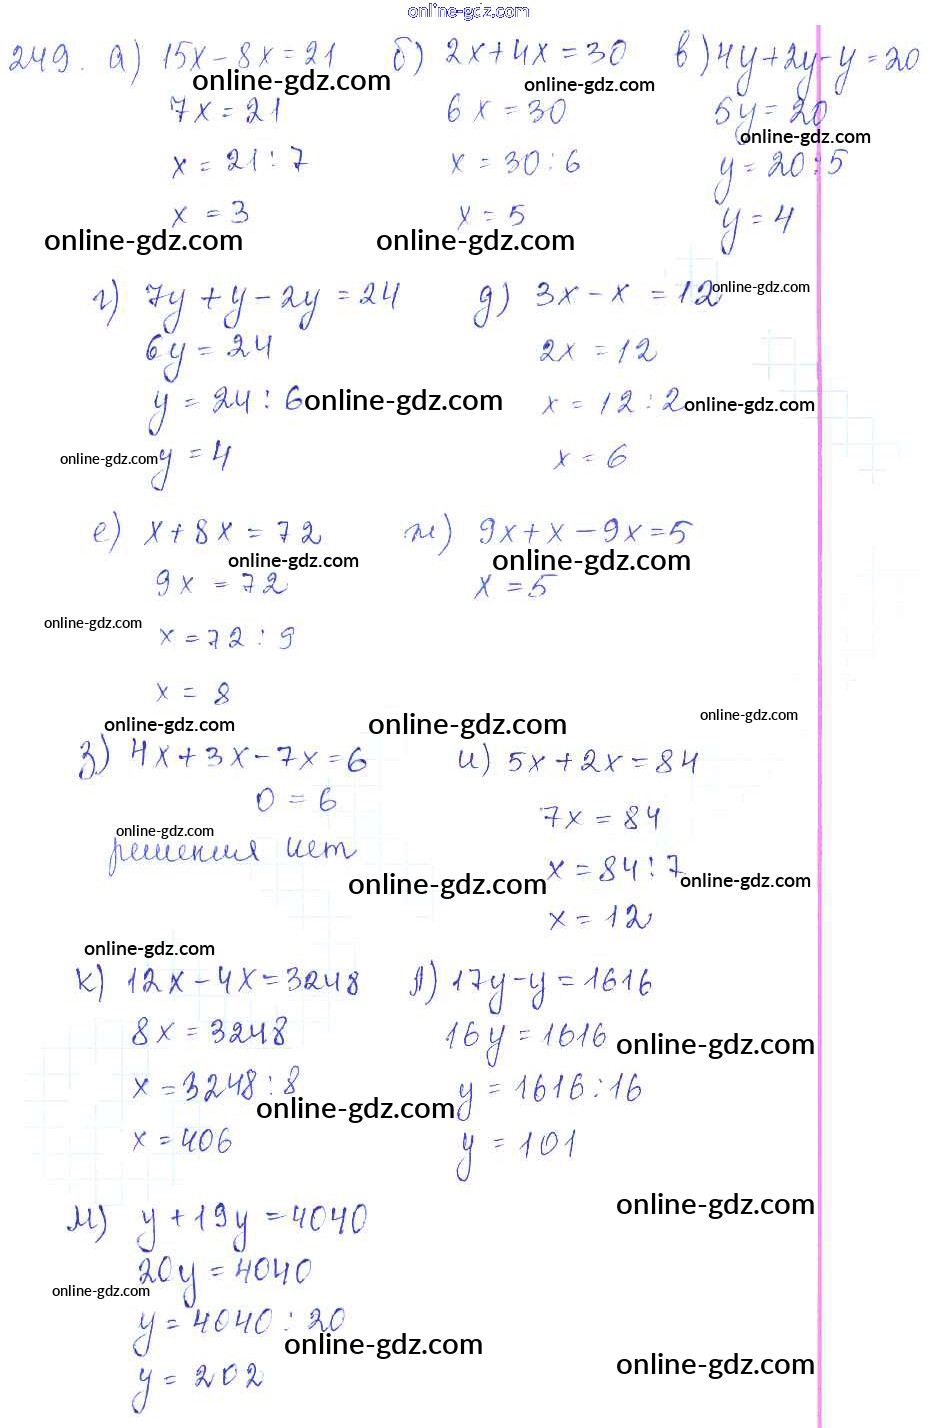 online-gdz.com
249. а) 15x - 8x = 21
7x = 21
x = 21 : 7
x = 3
б) 2x + 4x = 30
6x = 30
x = 30 : 6
x = 5
в) 4y + 2y - y = 20
5y = 20
y = 20 : 5
y = 4
online-gdz.com
online-gdz.com
online-gdz.com
online-gdz.com
online-gdz.com
г) 7y + y - 2y = 24
6y = 24
y = 24 : 6
y = 4
д) 3x - x = 12
2x = 12
x = 12 : 2
x = 6
online-gdz.com
online-gdz.com
online-gdz.com
online-gdz.com
е) x + 8x = 72
9x = 72
x = 72 : 9
x = 8
ж) 9x + x - 9x = 5
x = 5
online-gdz.com
online-gdz.com
online-gdz.com
online-gdz.com
online-gdz.com
online-gdz.com
з) 4x + 3x - 7x = 6
0 = 6
решения нет
и) 5x + 2x = 84
7x = 84
x = 84 : 7
x = 12
online-gdz.com
online-gdz.com
online-gdz.com
online-gdz.com
к) 12x - 4x = 3248
8x = 3248
x = 3248 : 8
x = 406
л) 17y - y = 1616
16y = 1616
y = 1616 : 16
y = 101
online-gdz.com
online-gdz.com
online-gdz.com
м) y + 19y = 4040
20y = 4040
y = 4040 : 20
y = 202
online-gdz.com
online-gdz.com
online-gdz.com